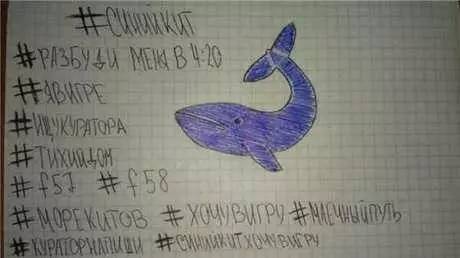 #СИНИЙКИТ
#РАЗБУДИ МЕНЯ В 4:20
#ЯВИГРЕ
#ИЩУКУРАТОРА
#ТИХИЙДОМ
# f57 # f58
#МОРЕКИТОВ #ХОЧУВИГРУ #МЛЕЧНЫЙПУТЬ
#КУРАТОРНАПИШИ #СИНИЙКИТХОЧУВИГРУ